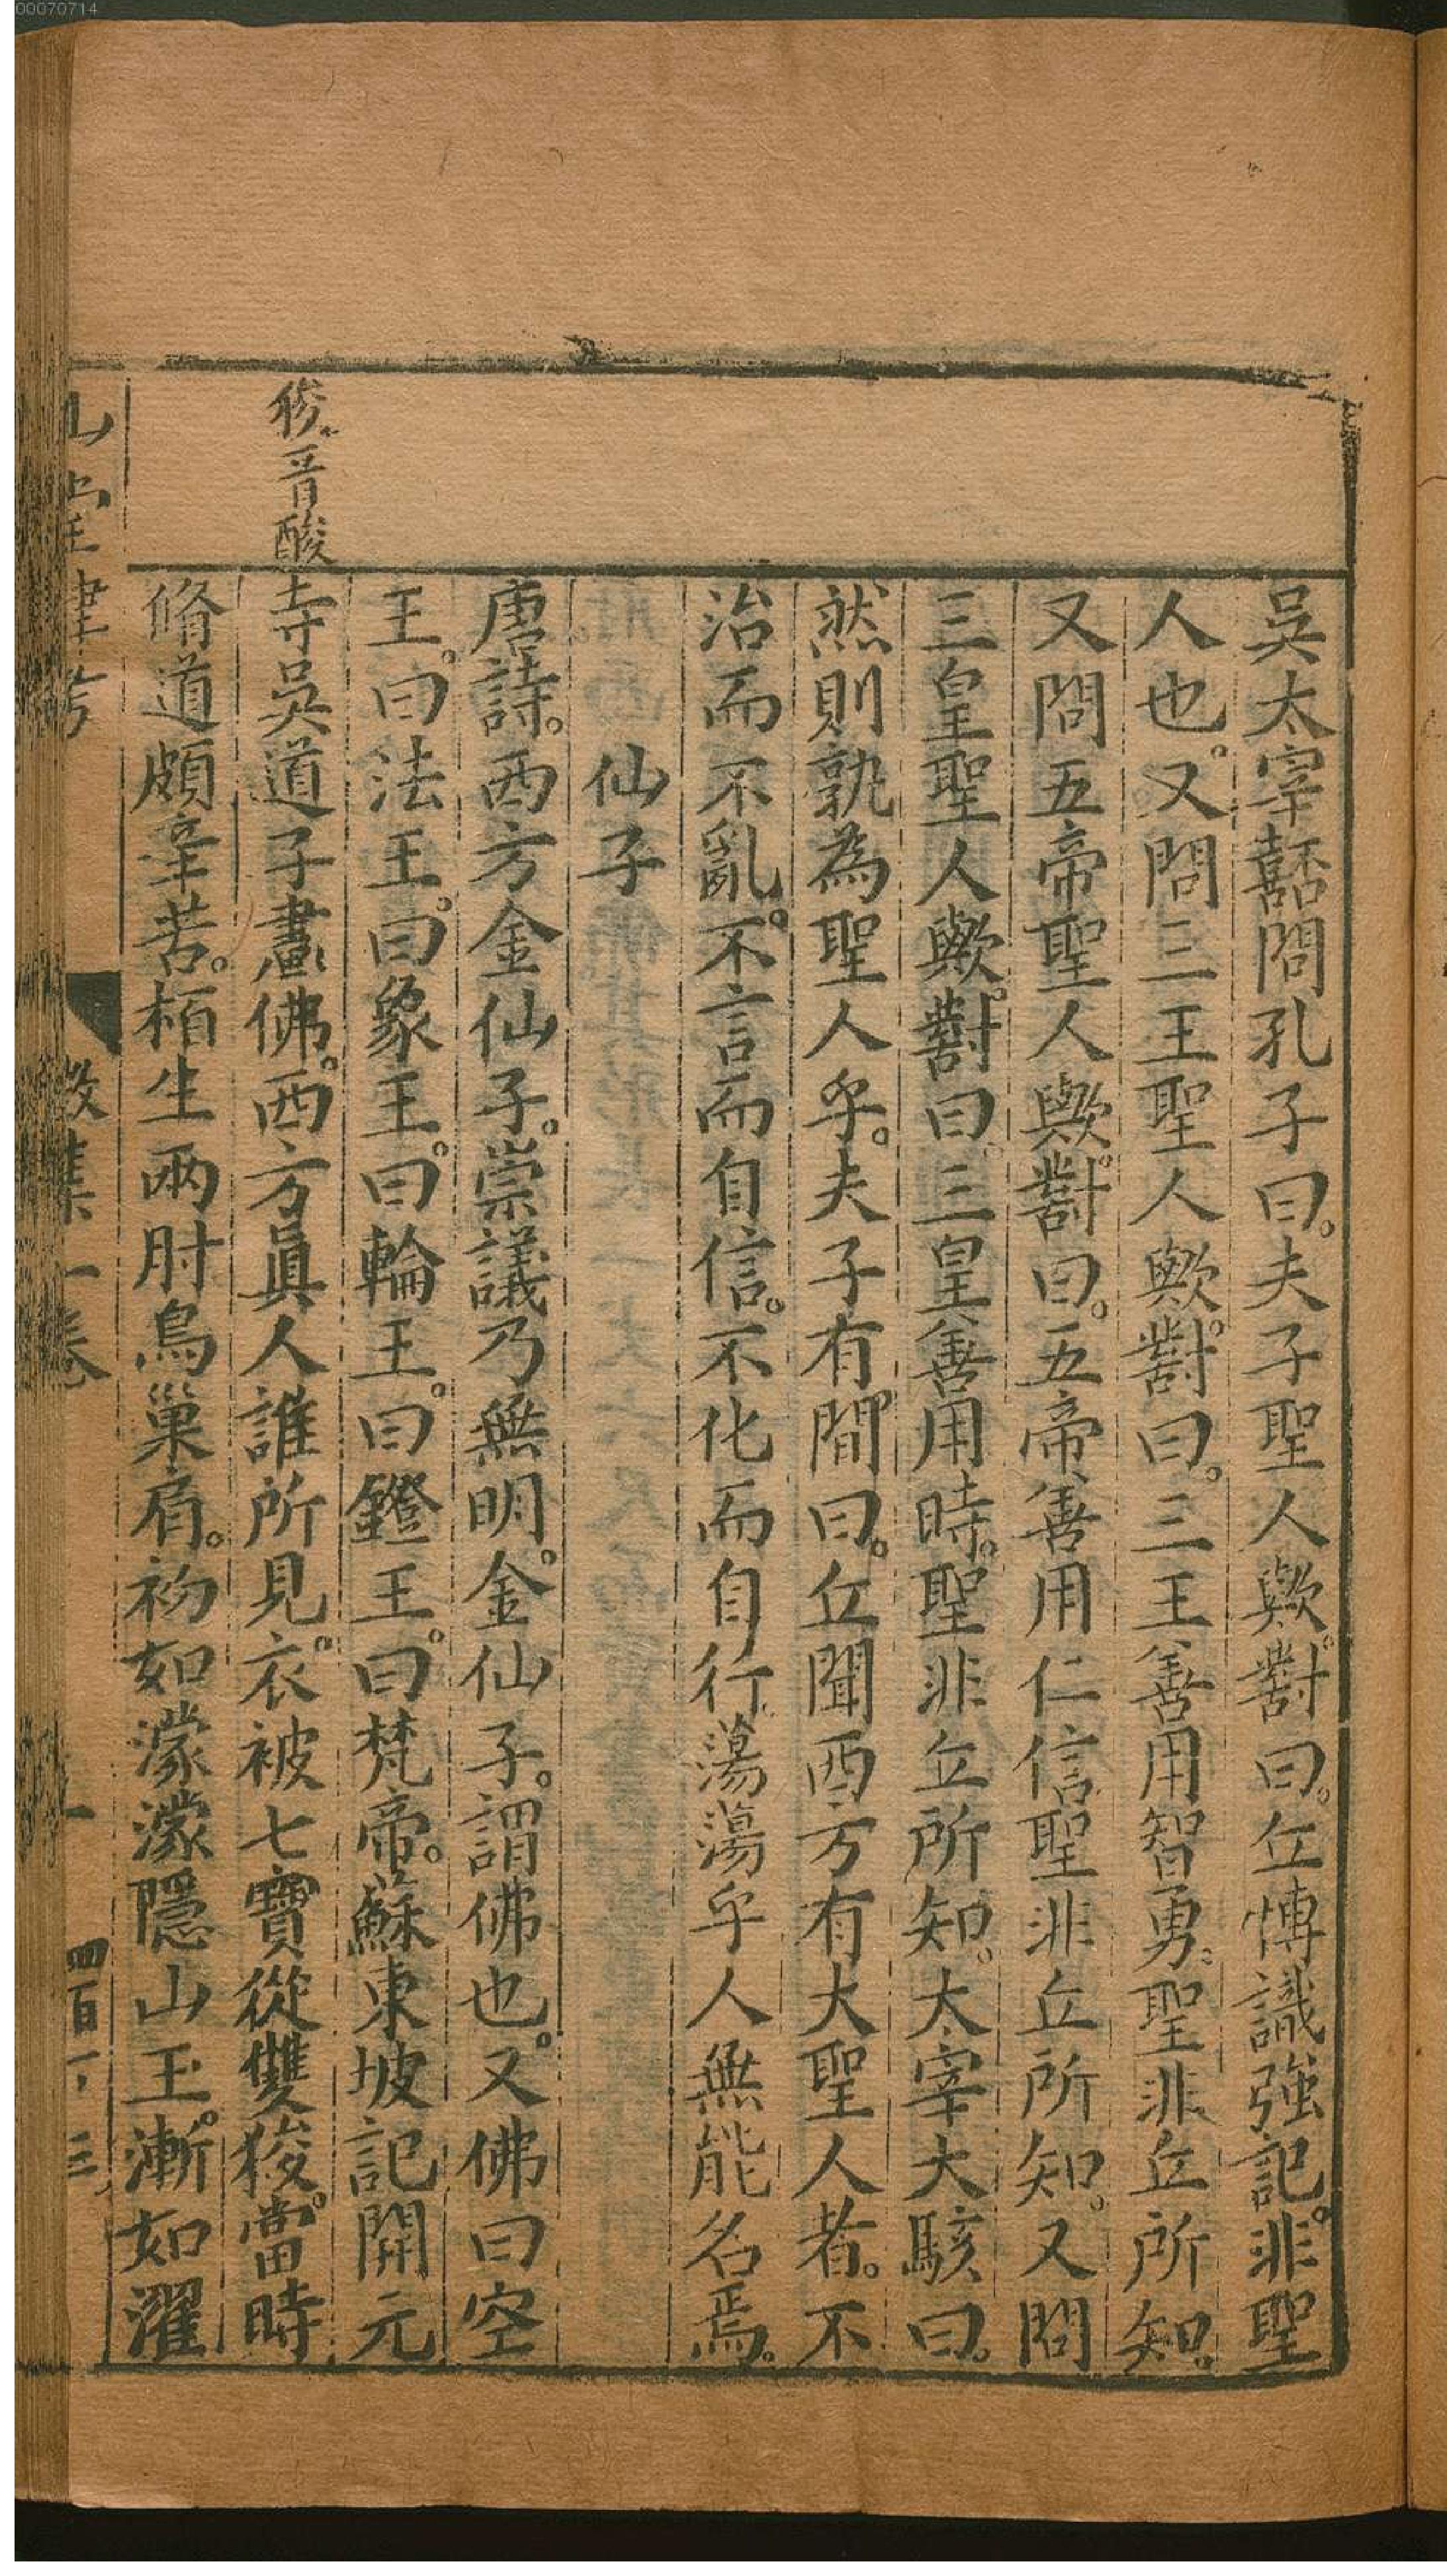 00070714
吳太宰嚭問孔子曰。夫子聖人歟。對曰。丘博識強記。非聖
人也。又問三王聖人歟。對曰。三王善用智勇。聖非丘所知。
又問五帝聖人歟。對曰。五帝善用仁信。聖非丘所知。又問
三皇聖人歟。對曰。三皇善用時。聖非丘所知。太宰大駭曰。
然則孰為聖人乎。夫子有間曰。丘聞西方有大聖人者。不
治而不亂。不言而自信。不化而自行。蕩蕩乎人無能名焉。
仙子
唐詩。西方金仙子。崇議乃無明。金仙子。謂佛也。又佛曰空
王。曰法王。曰象王。曰輪王。曰鐙王。曰梵帝。蘇東坡記開元
狻。音酸
寺吳道子畫佛。西方眞人誰所見。衣被七寶從雙狻。當時
脩道頗辛苦。栢生兩肘鳥巢肩。初如濛濛隱山玉。漸如濯
山堂肆考
徵集一卷
四百丁三